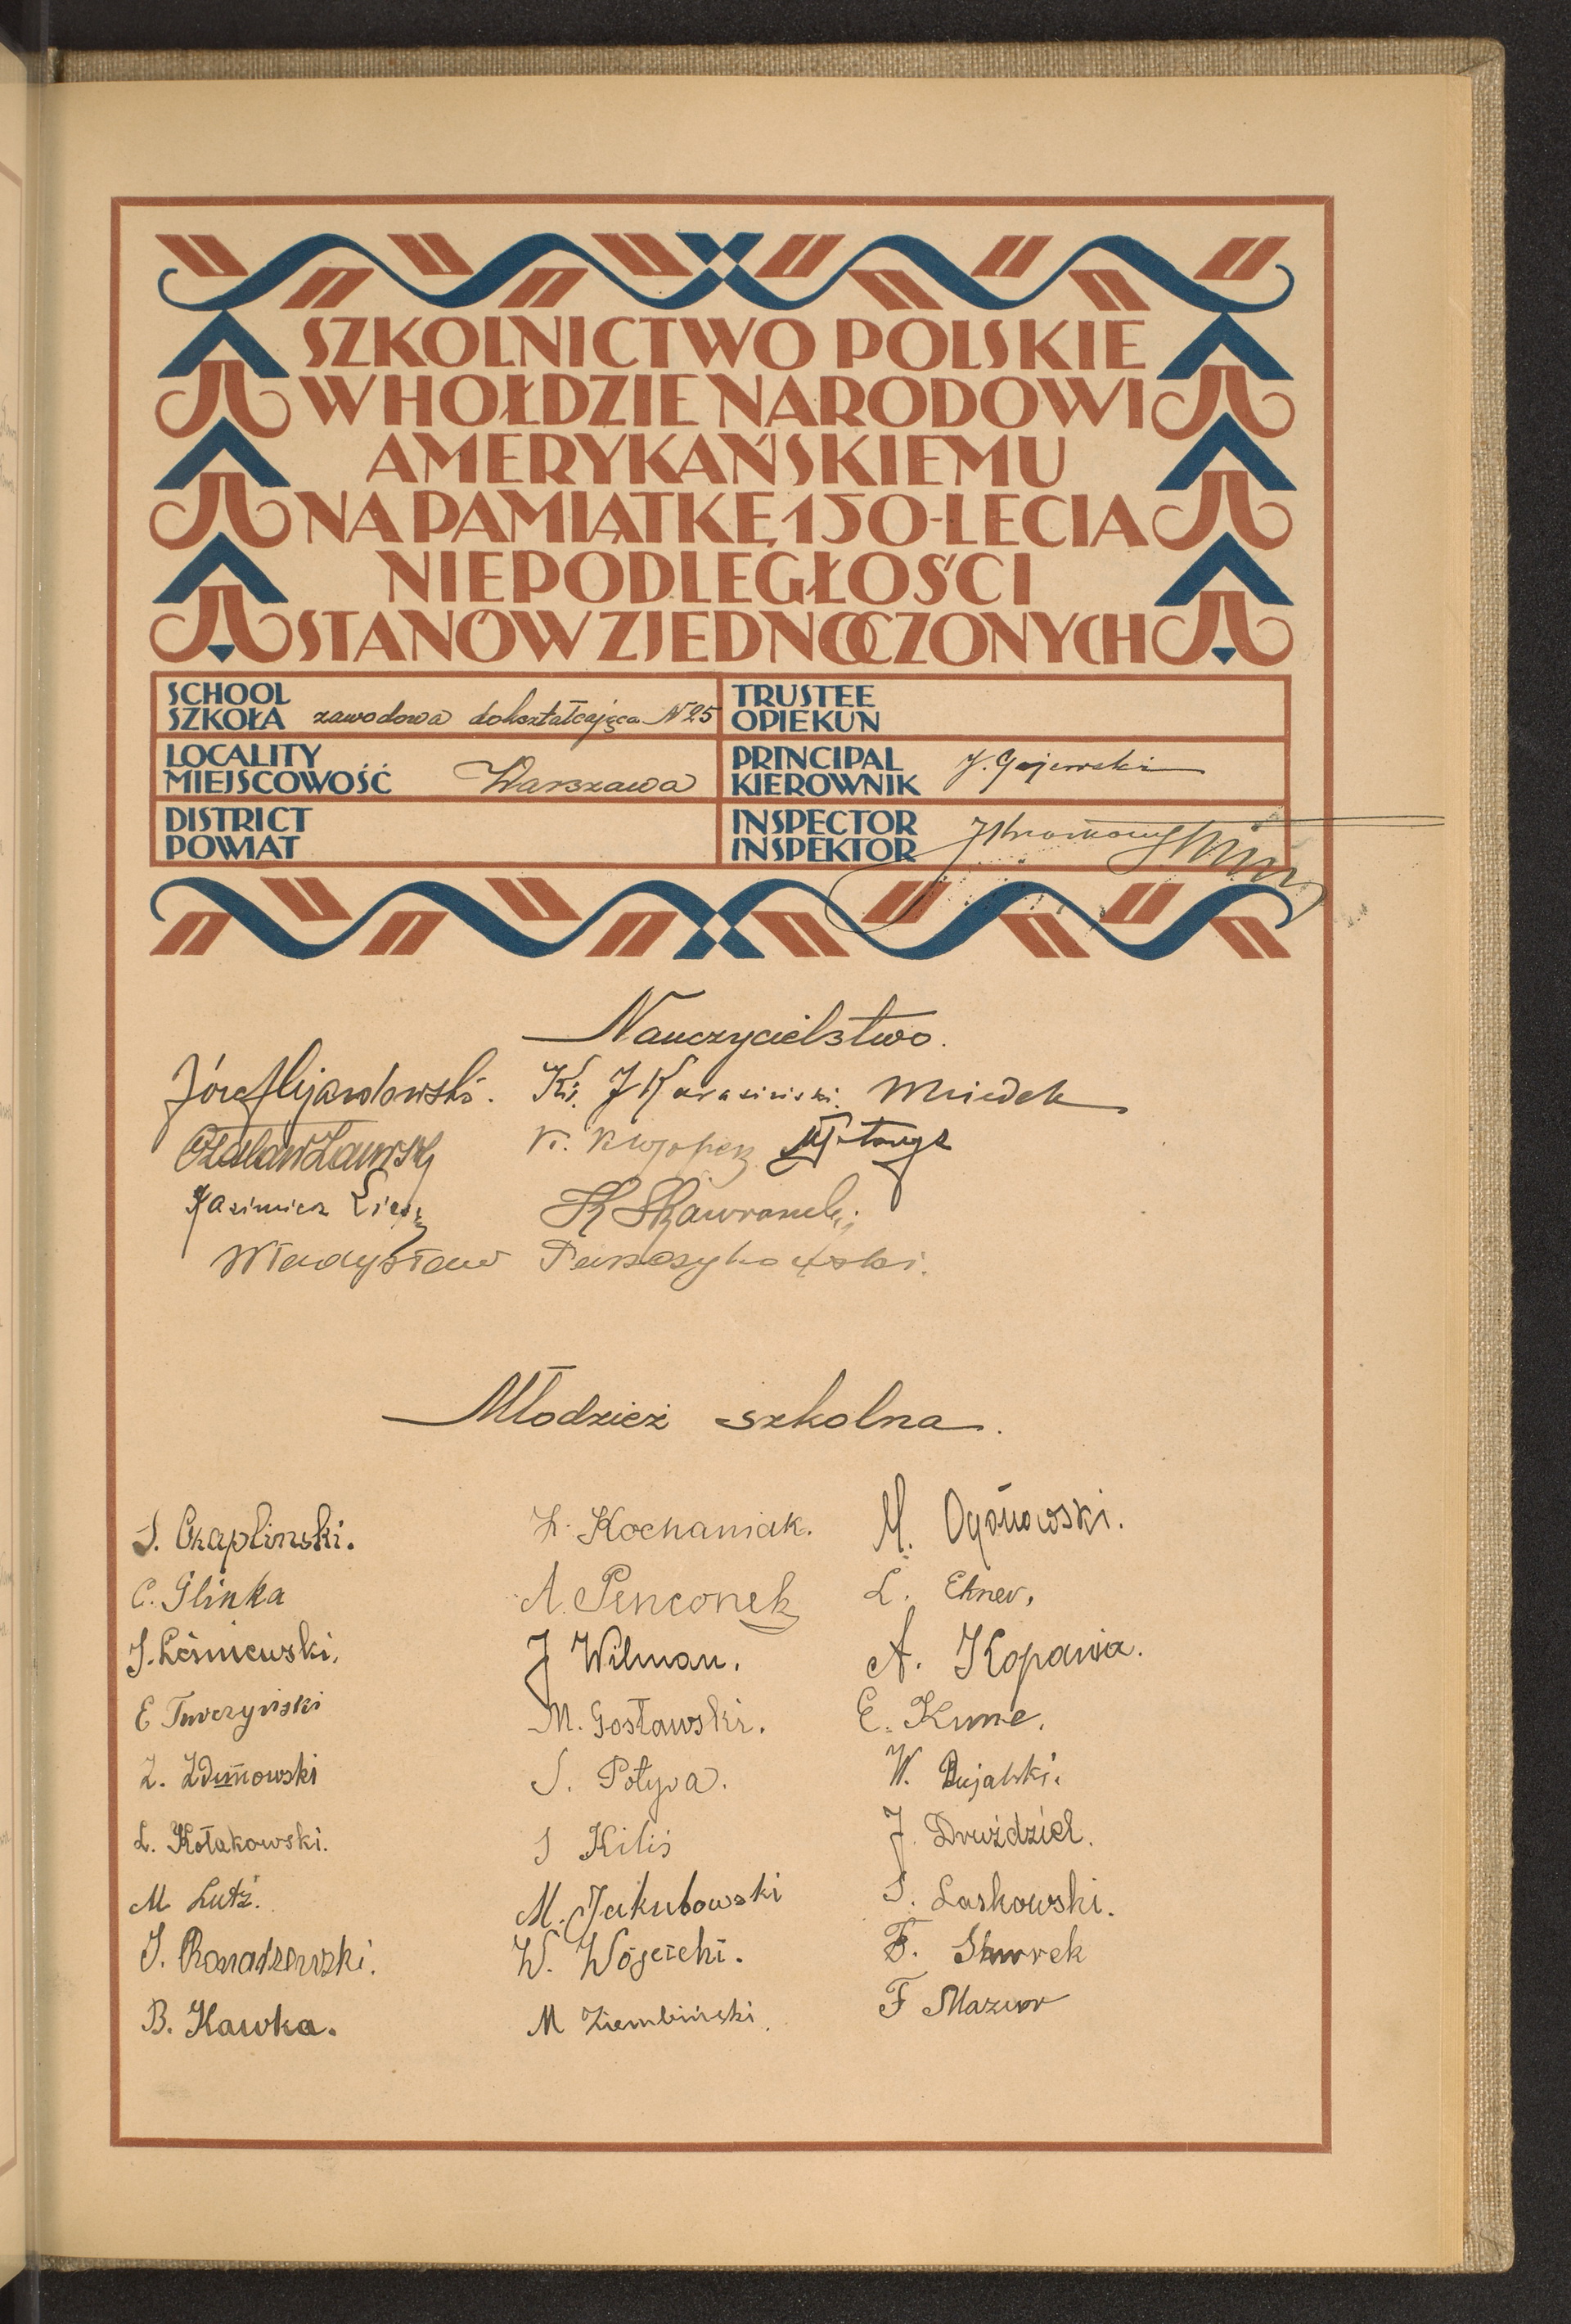 SZKOLNICTWO POLSKIE
W HOŁDZIE NARODOWI
AMERYKAŃSKIEMU
NA PAMIĄTKĘ 150-LECIA
NIEPODLEGŁOŚCI
STANÓW ZJEDNOCZONYCH
SCHOOL
SZKOŁA zawodowa dokształcająca N25
TRUSTEE
OPIEKUN
LOCALITY
MIEJSCOWOŚĆ Warszawa
PRINCIPAL
KIEROWNIK J. Gajewski
DISTRICT
POWIAT
INSPECTOR
INSPEKTOR
Nauczycielstwo.
Józef Ks. J Karasiński.
K.
Kazimierz
Władysław
Młodzież szkolna.
S. Czaplinski. H. Kochaniak. M. Ogonowski.
C. Glinka A. Penconek L. Ekner.
J. Leśniewski. J Wilman. A. Kopania.
E Turczyński M. Gosławski. E. Kune.
Z. Zdunowski S. Potyra. W. Bujalski.
L. Kołakowski. S Kiliś J. Druździel.
M Lutz. M. Jakubowski S. Laskowski.
J. W. Wójcicki. F. Skurek
B. Kawka. M Ziembiński. F Mazur